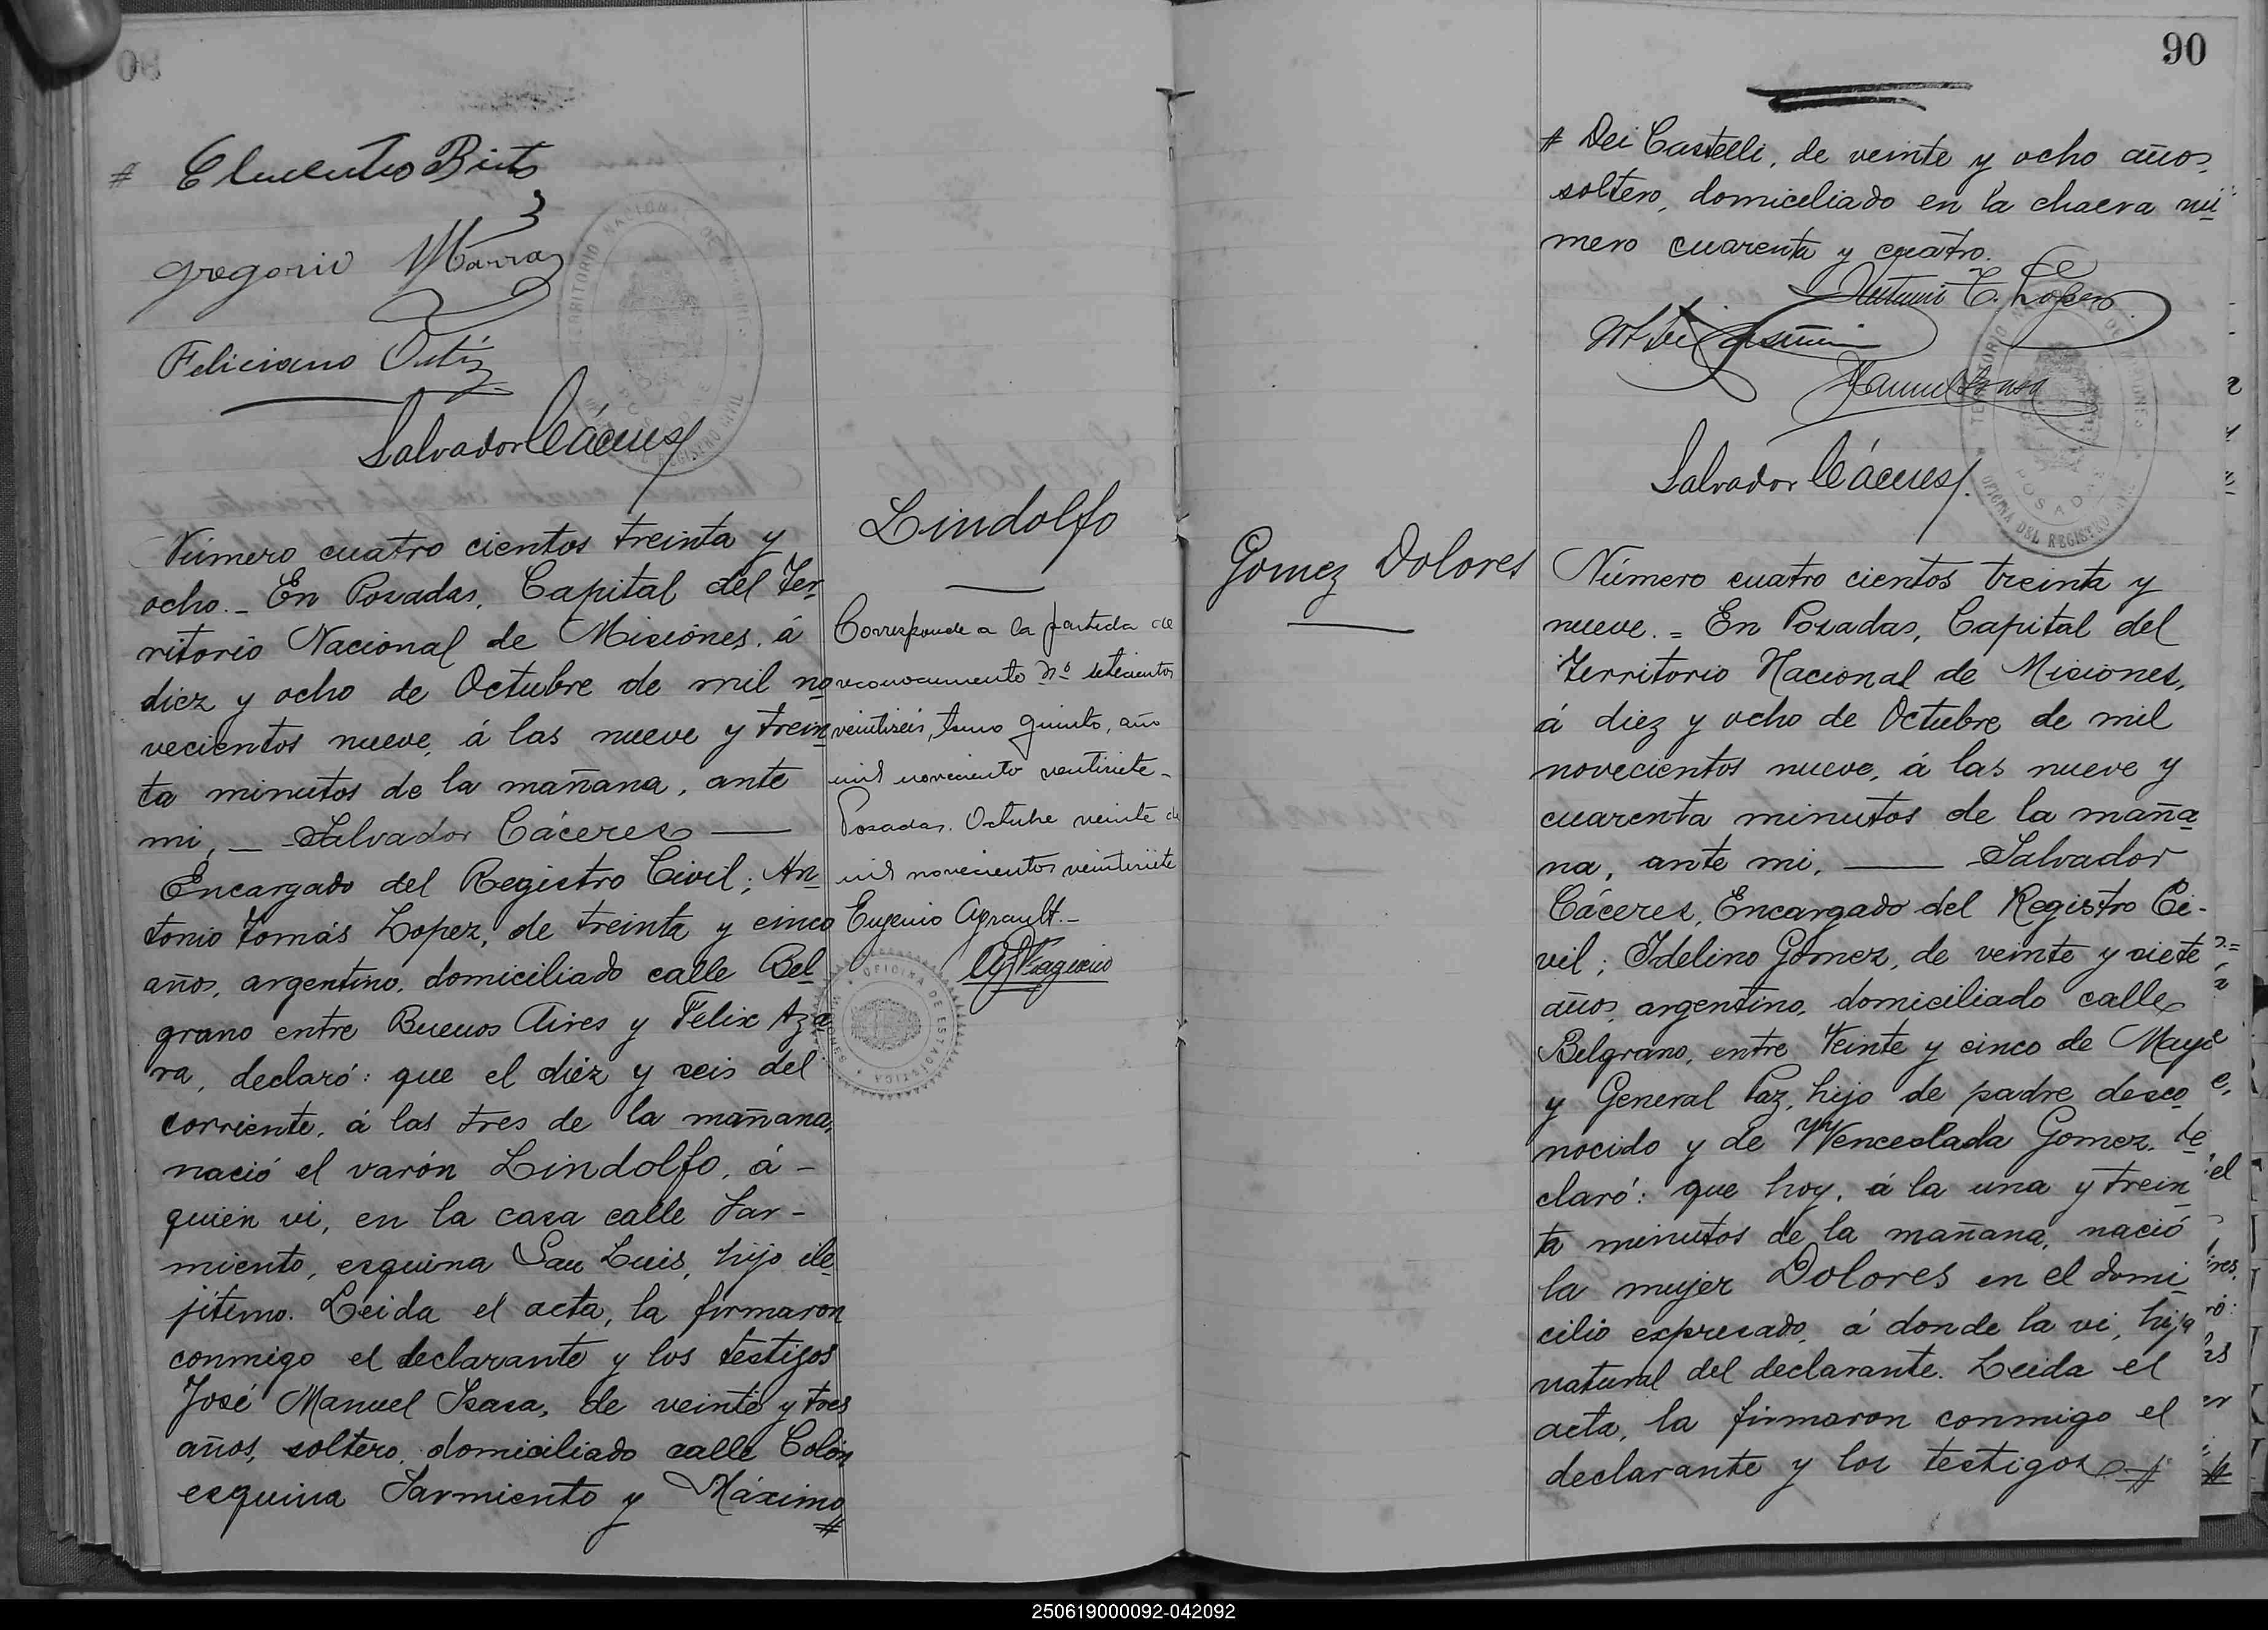 90
# Clementino Brito
Gregorio
Feliciano Ortiz
Salvador Cáceres
Número cuatro cientos treinta y
ocho._ En Posadas, Capital del Ter
ritorio Nacional de Misiones, á
diez y ocho de Octubre de mil no
vecientos nueve, á las nueve y trein
ta minutos de la mañana, ante
mi, _ Salvador Cáceres —
Encargado del Registro Civil; An
tonio Tomás Lopez, de treinta y cinco
años, argentino, domiciliado calle Bel
grano entre Buenos Aires y Felix Aza
ra, declaró: que el diez y seis del
corriente, á las tres de la mañana,
nació el varón Lindolfo, á -
quien vi, en la casa calle Sar -
miento, esquina San Luis, hijo ile
jítimo. Leida el acta, la firmaron
conmigo el declarante y los testigos
José Manuel Isasa, de veinte y tres
años, soltero, domiciliado calle Colón
esquina Sarmiento y Máximo
#
Lindolfo
Corresponde a la partida de
reconocimiento Nº setecientos
veintiseis, tomo quinto, año
mil novecientos veintisiete -
Posadas. Octubre veinte de
mil novecientos veintisiete
Eugenio
OFICINA DE ESTADISTICA
MISIONES
# Dei Castelli, de veinte y ocho años,
soltero, domiciliado en la chacra nú
mero cuarenta y cuatro.
Antonio T. Lopez
Salvador Cáceres
TERRITORIO NACIONAL DE MISIONES
POSADAS
OFICINA DEL REGISTRO CIVIL
Gomez Dolores
Número cuatro cientos treinta y
nueve. = En Posadas, Capital del
Territorio Nacional de Misiones,
á diez y ocho de Octubre de mil
novecientos nueve, á las nueve y
cuarenta minutos de la maña
na, ante mi, — Salvador
Cáceres, Encargado del Registro Ci-
vil; Idelino Gomez, de veinte y siete
años, argentino, domiciliado calle
Belgrano, entre Veinte y cinco de Mayo
y General Paz, hijo de padre desco
nocido y de Wenceslada Gomez, de
claró: que hoy, á la una y trein
ta minutos de la mañana, nació
la mujer Dolores en el domi
cilio expresado, á donde la vi, hija
natural del declarante. Leida el
acta, la firmaron conmigo el
declarante y los testigos #
250619000092-042092